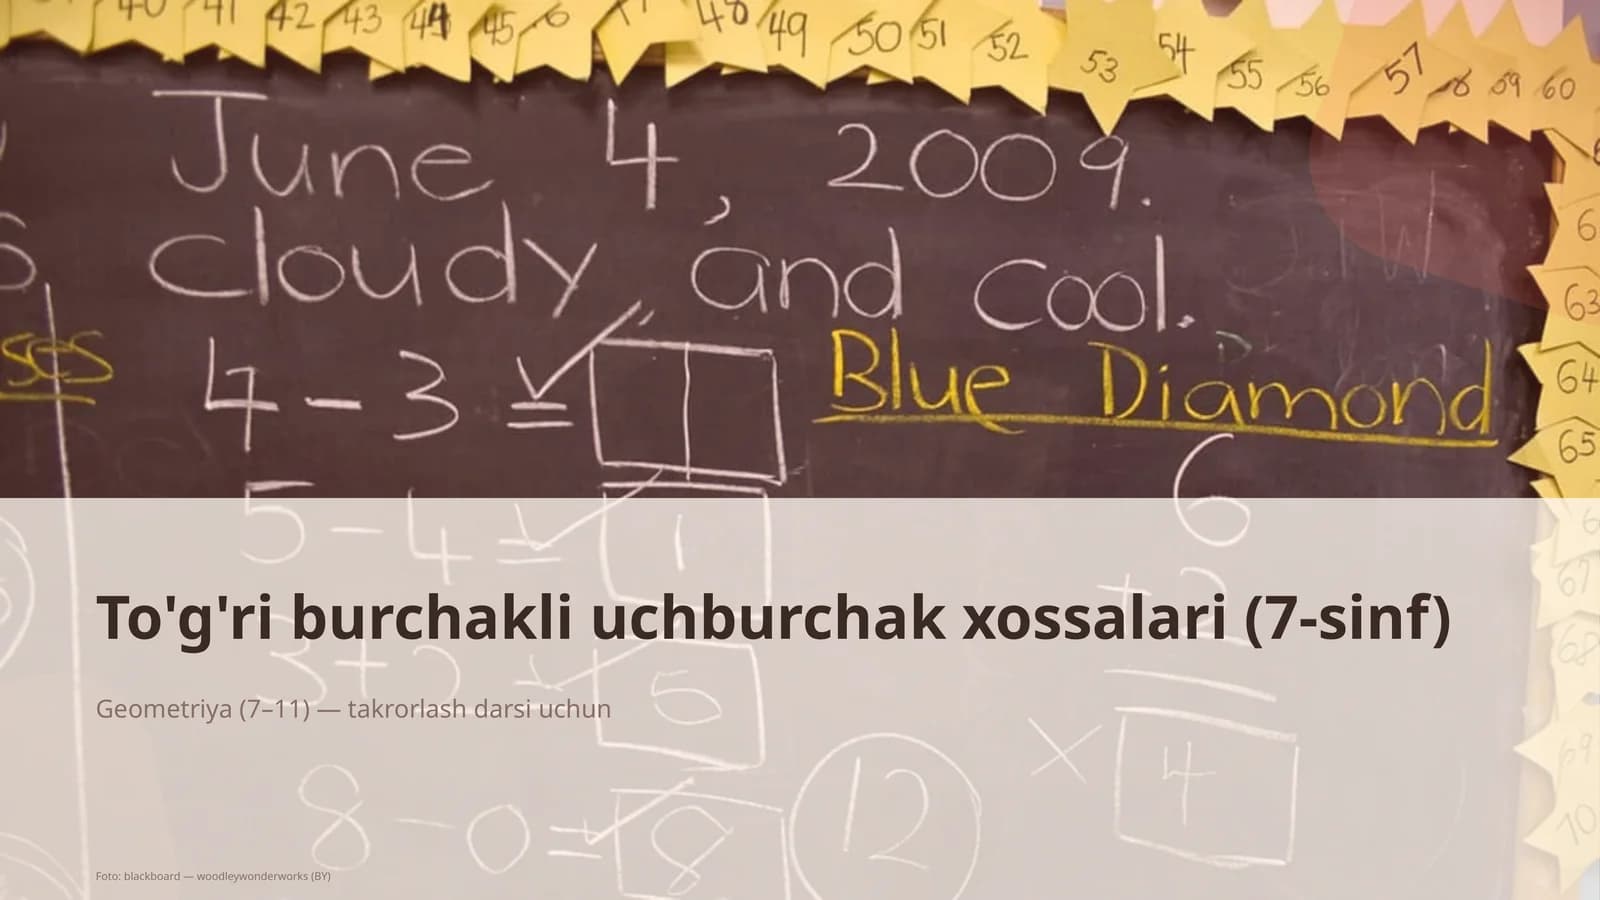 40 41 42 43 44 45 48 49 50 51 52 53 54 55 56 57 58 59 60
June 4, 2009.
cloudy, and cool.
63
ses
4 - 3 =
Blue Diamond
64
65
6
5 - 4 = 1
67
To'g'ri burchakli uchburchak xossalari (7-sinf)
68
5
Geometriya (7–11) — takrorlash darsi uchun
69
× 4
8 - 0 = 8
12
70
Foto: blackboard — woodleywonderworks (BY)